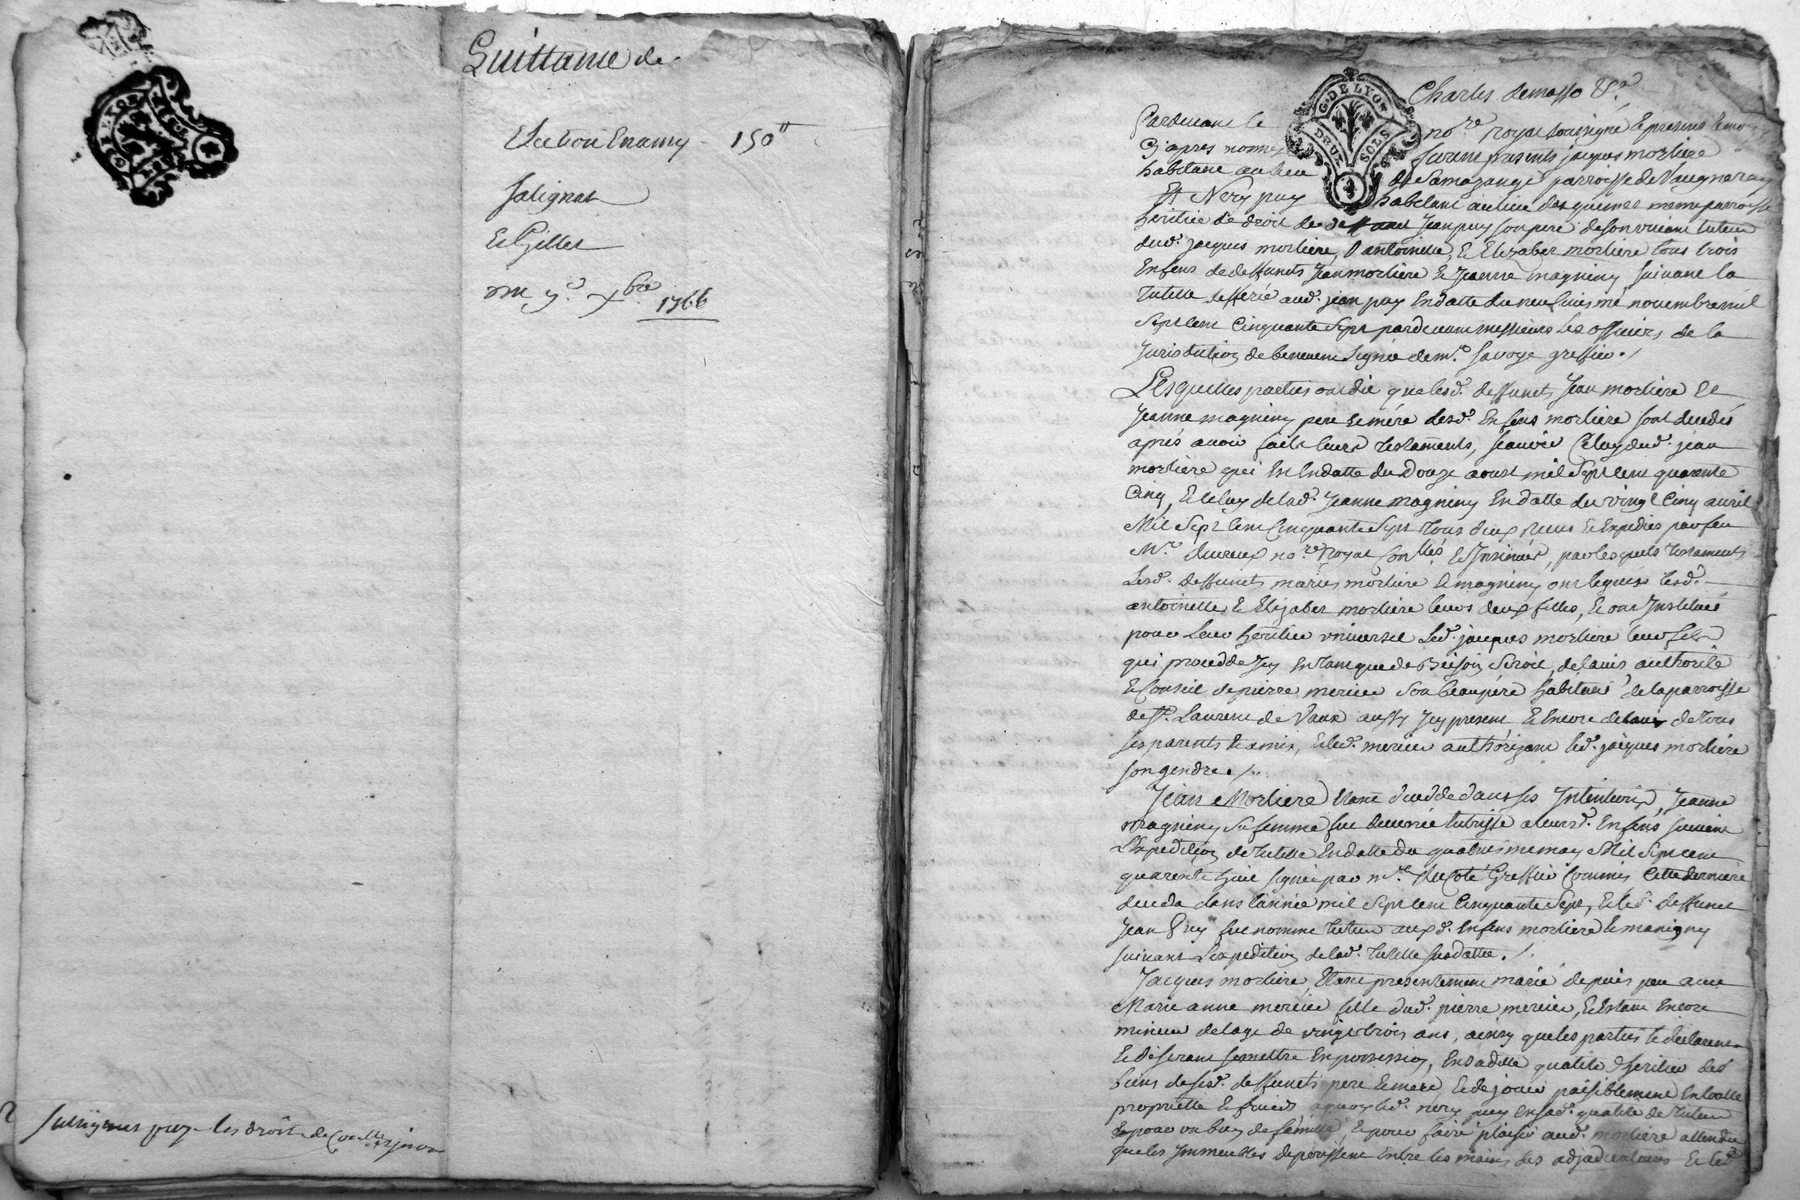 Quittance de
150
Salignat
Et Gillet
1766
les droits de
G. DE LYON
DEUX SOLS
Charles demasso &c.
Pardevant le
no.re royal soussigné & presents temoins
Cy apres nommés
furent presents jacques morliere
habitant au lieu
de Samazange parroisse de Vaugneray
Et Nery puy
habitant au lieu des meme parroisse
heritier de droit de deffunt Jean puy son pere de son vivant tuteur
dud. jacques morliere, d'antoinette, & Elizabet morliere tous trois
Enfens de deffunts Jean morliere & Jeanne magniny, suivant la
Tutelle defferée aud. jean puy En datte du neufviesme novembre mil
Sept Cent Cinquante Sept pardevant messieurs les officiers de la
Jurisdiction de signée de m.e Savoye greffier ./
Lesquelles parties ont dit que lesd. deffunts Jean morliere &
Jeanne magniny pere & mere desd. Enfens morliere sont decedés
après avoir fait leurs testaments, scavoir Celuy dud. jean
morliere qui En datte du Douze aoust mil Sept Cent quarente
Cinq, & Celuy de lad. Jeanne magniny En datte du vingt Cinq avril
Mil Sept Cent Cinquante Sept tous deux Receus & Expediés par feu
M.re no.re royal & Insinués, par lesquels testaments
Lesd. deffunts mariés morliere & magniny ont legué lesd.
antoinette & Elizabet morliere leurs deux filles, & ont Institué
pour leur heritier universel led. jacques morliere leur fils
qui procedde Icy de l'avis authorité
& Conseil de pierre mercier son beaupère habitant de la parroisse
de St. Laurent de Vaux aussy Icy present & Encore de l'avis de tous
ses parents & amis, & led. mercier authorizant led. jacques morliere
son gendre ./.
Jean Morliere Etant decedde dans ses Intentions, Jeanne
magniny sa femme fut decernée tutrisse a leursd. Enfens suivant
L'Expedition de Tutelle En datte du quatriesme may Mil Sept Cent
quarente huit signée par m.e Greffier Commis Cette derniere
deceda dans l'année mil Sept Cent Cinquante Sept, & led. deffunt
Jean Puy fut nommé tuteur auxd. Enfens morliere & manigny
suivant L'expedition de lad. tutelle susdatte ./.
Jacques morliere, Etant presentement marié depuis peu avec
Marie anne mercier fille dud. pierre mercier, & Estant Encore
mineur de l'age de vingt trois ans, ainsy que les parties le declarent
& desirant se mettre En possession, En sa ditte qualité d'heritier des
biens de sesd. deffunts pere & mere & de jouir paisiblement En toutte
proprietté & fruits, a quoy led. nery puy en sad. qualité de tuteur
& pour un bien de famille, & pour faire plaisir aud. morliere attendu
que les Immeubles deperissent Entre les mains des adjudicataires & led.